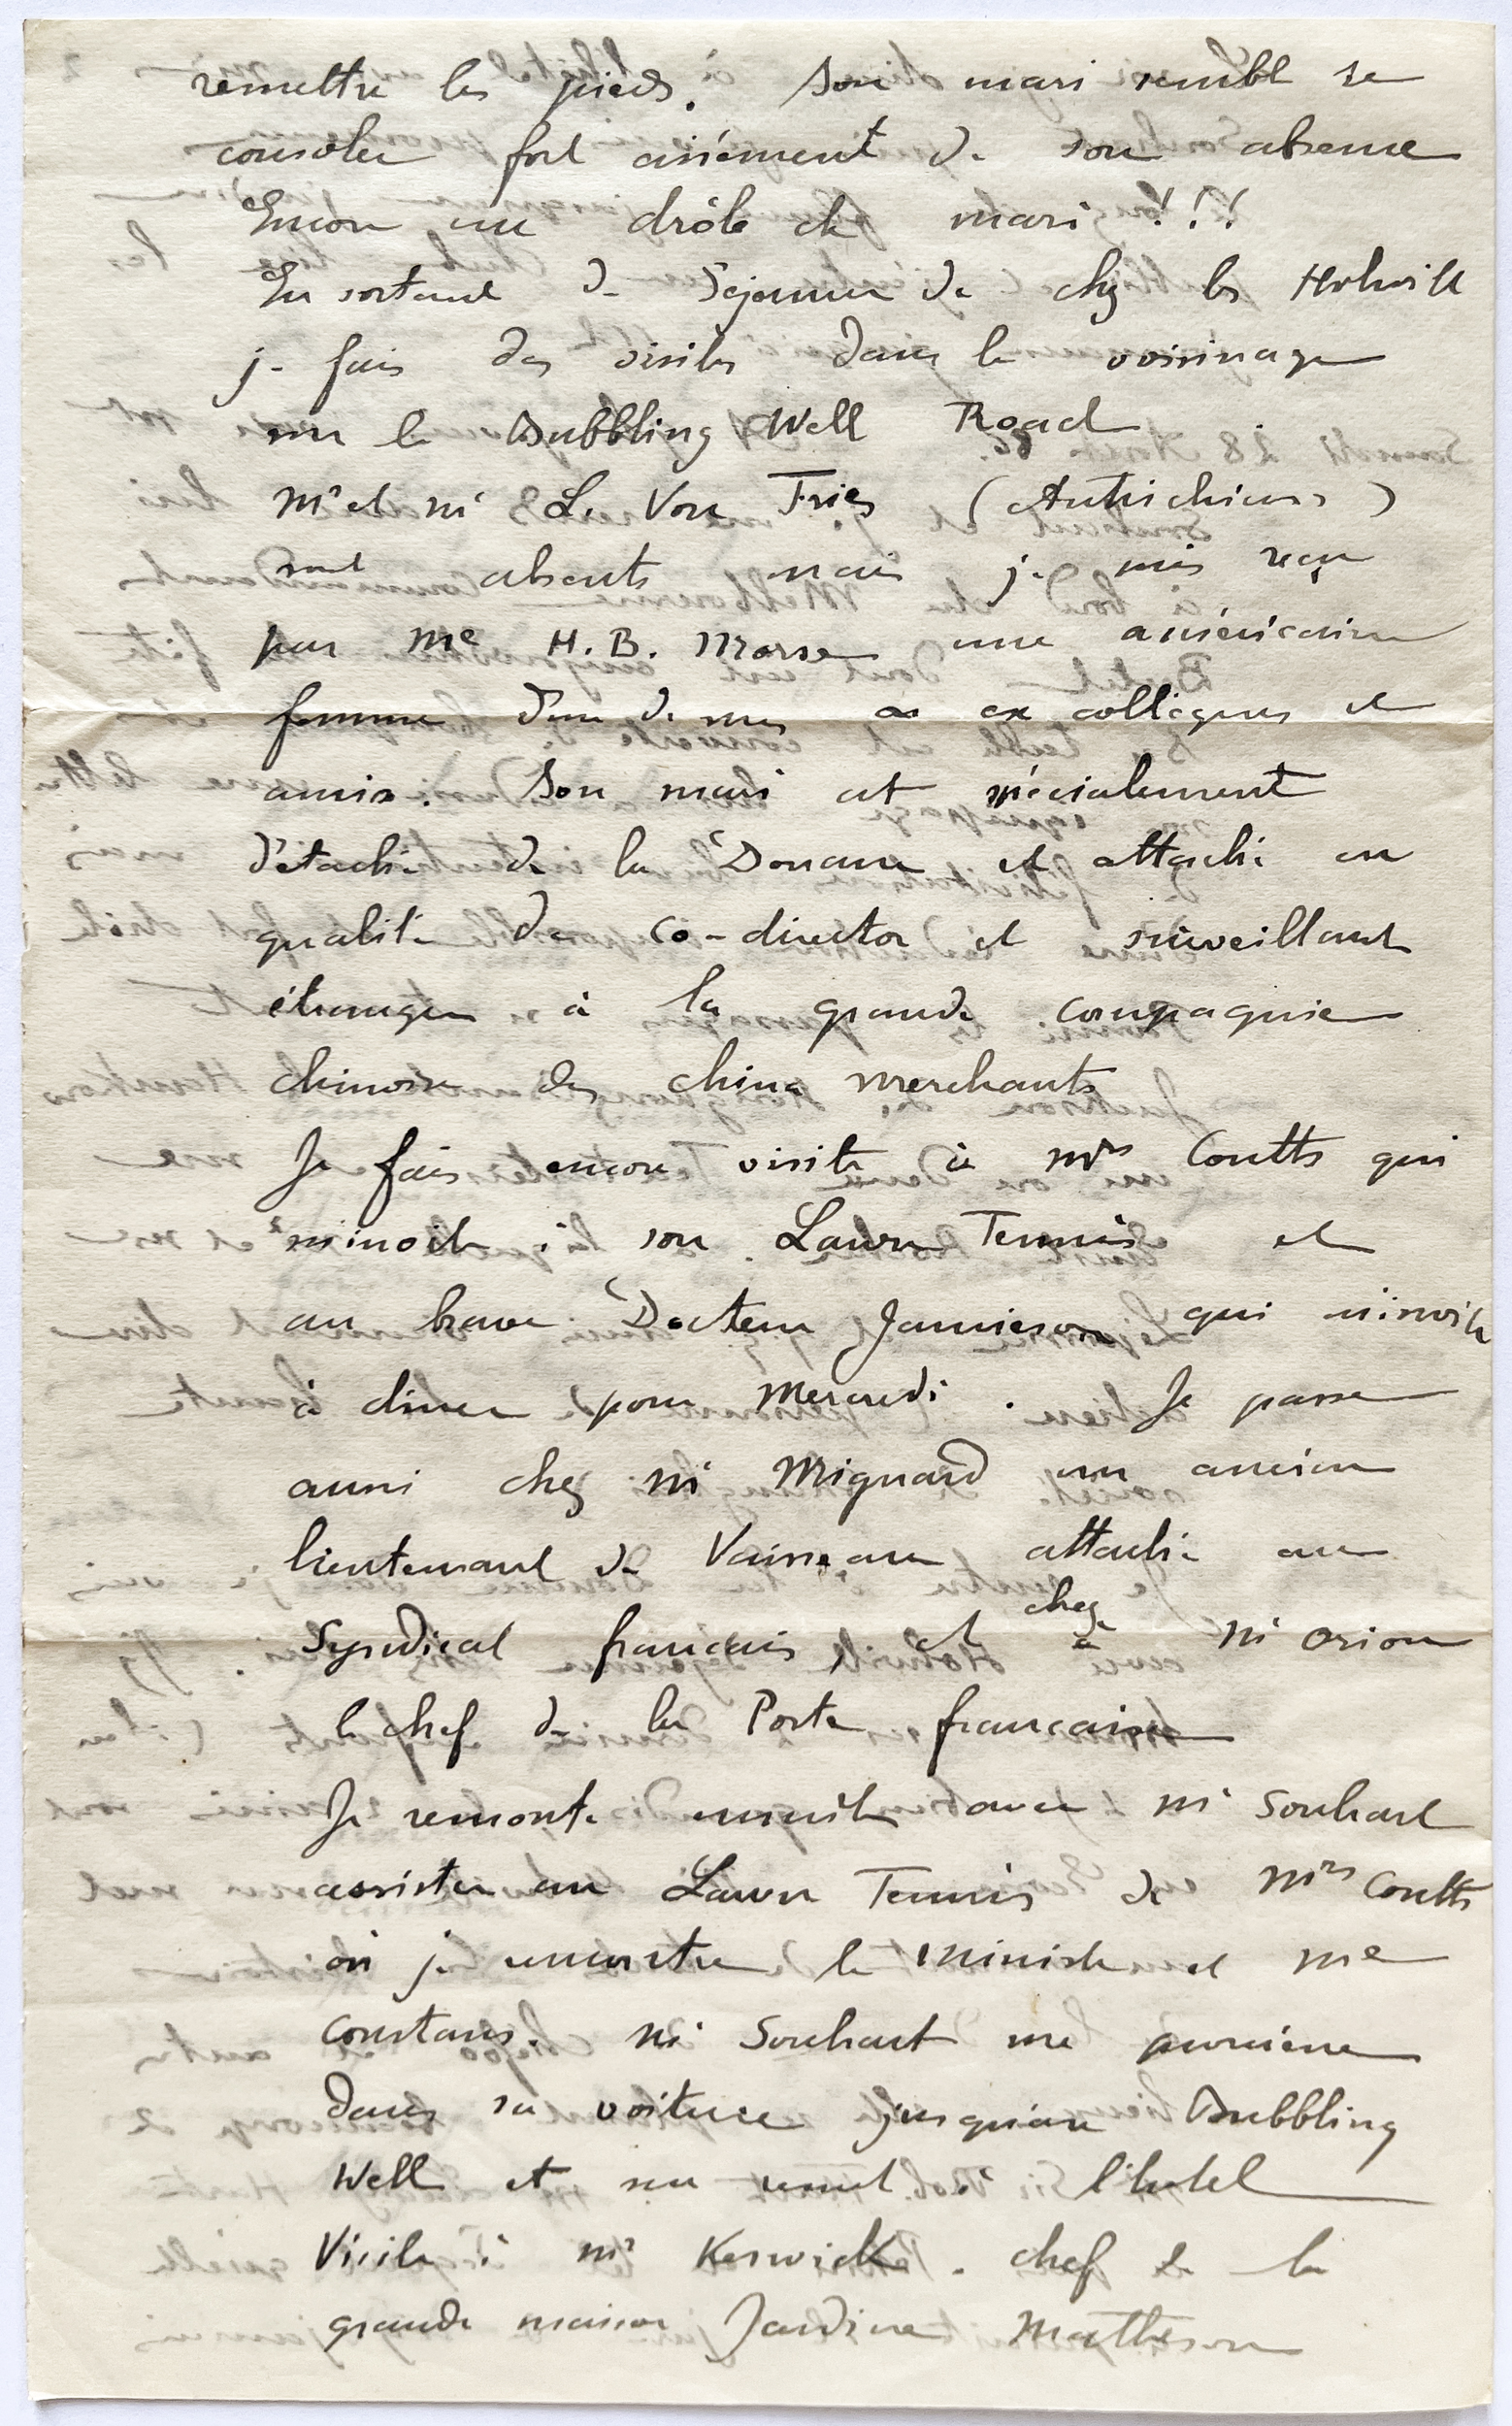 remettre les pieds. Son mari semble se
consoler fort aisément de son absence
Encore un drôle de mari !!!
En sortant de déjeuner de chez les Holwill
je fais des visites dans le voisinage
sur le Bubbling Well Road
Mr et Me L. Von Fries (Autrichiens)
sont absents mais je suis reçu
par Me H. B. Morse une américaine
femme d'un de mes ex collègues et
amis. Son mari est spécialement
détaché de la Douane et attaché en
qualité de co-director et surveillant
étranger à la grande compagnie
chinoise des china merchants
Je fais encore visite à Mrs Coutts qui
m'invite à son Lawn Tennis et
au brave Docteur Jamieson qui m'invite
à diner pour Mercredi. Je passe
aussi chez Mr Mignard un ancien
lieutenant de Vaisseau attaché au
Syndicat français, et chez Mr Orion
le chef de la Poste française
Je remonte ensuite avec Mr Souhart
assister au Lawn Tennis de Mrs Coutts
où je rencontre le Ministre et Me
Constans. Mr Souhart me promène
dans sa voiture jusqu'au Bubbling
Well et me remet à l'hotel
Visite à Mr Keswick. chef de la
grande maison Jardine Matheson